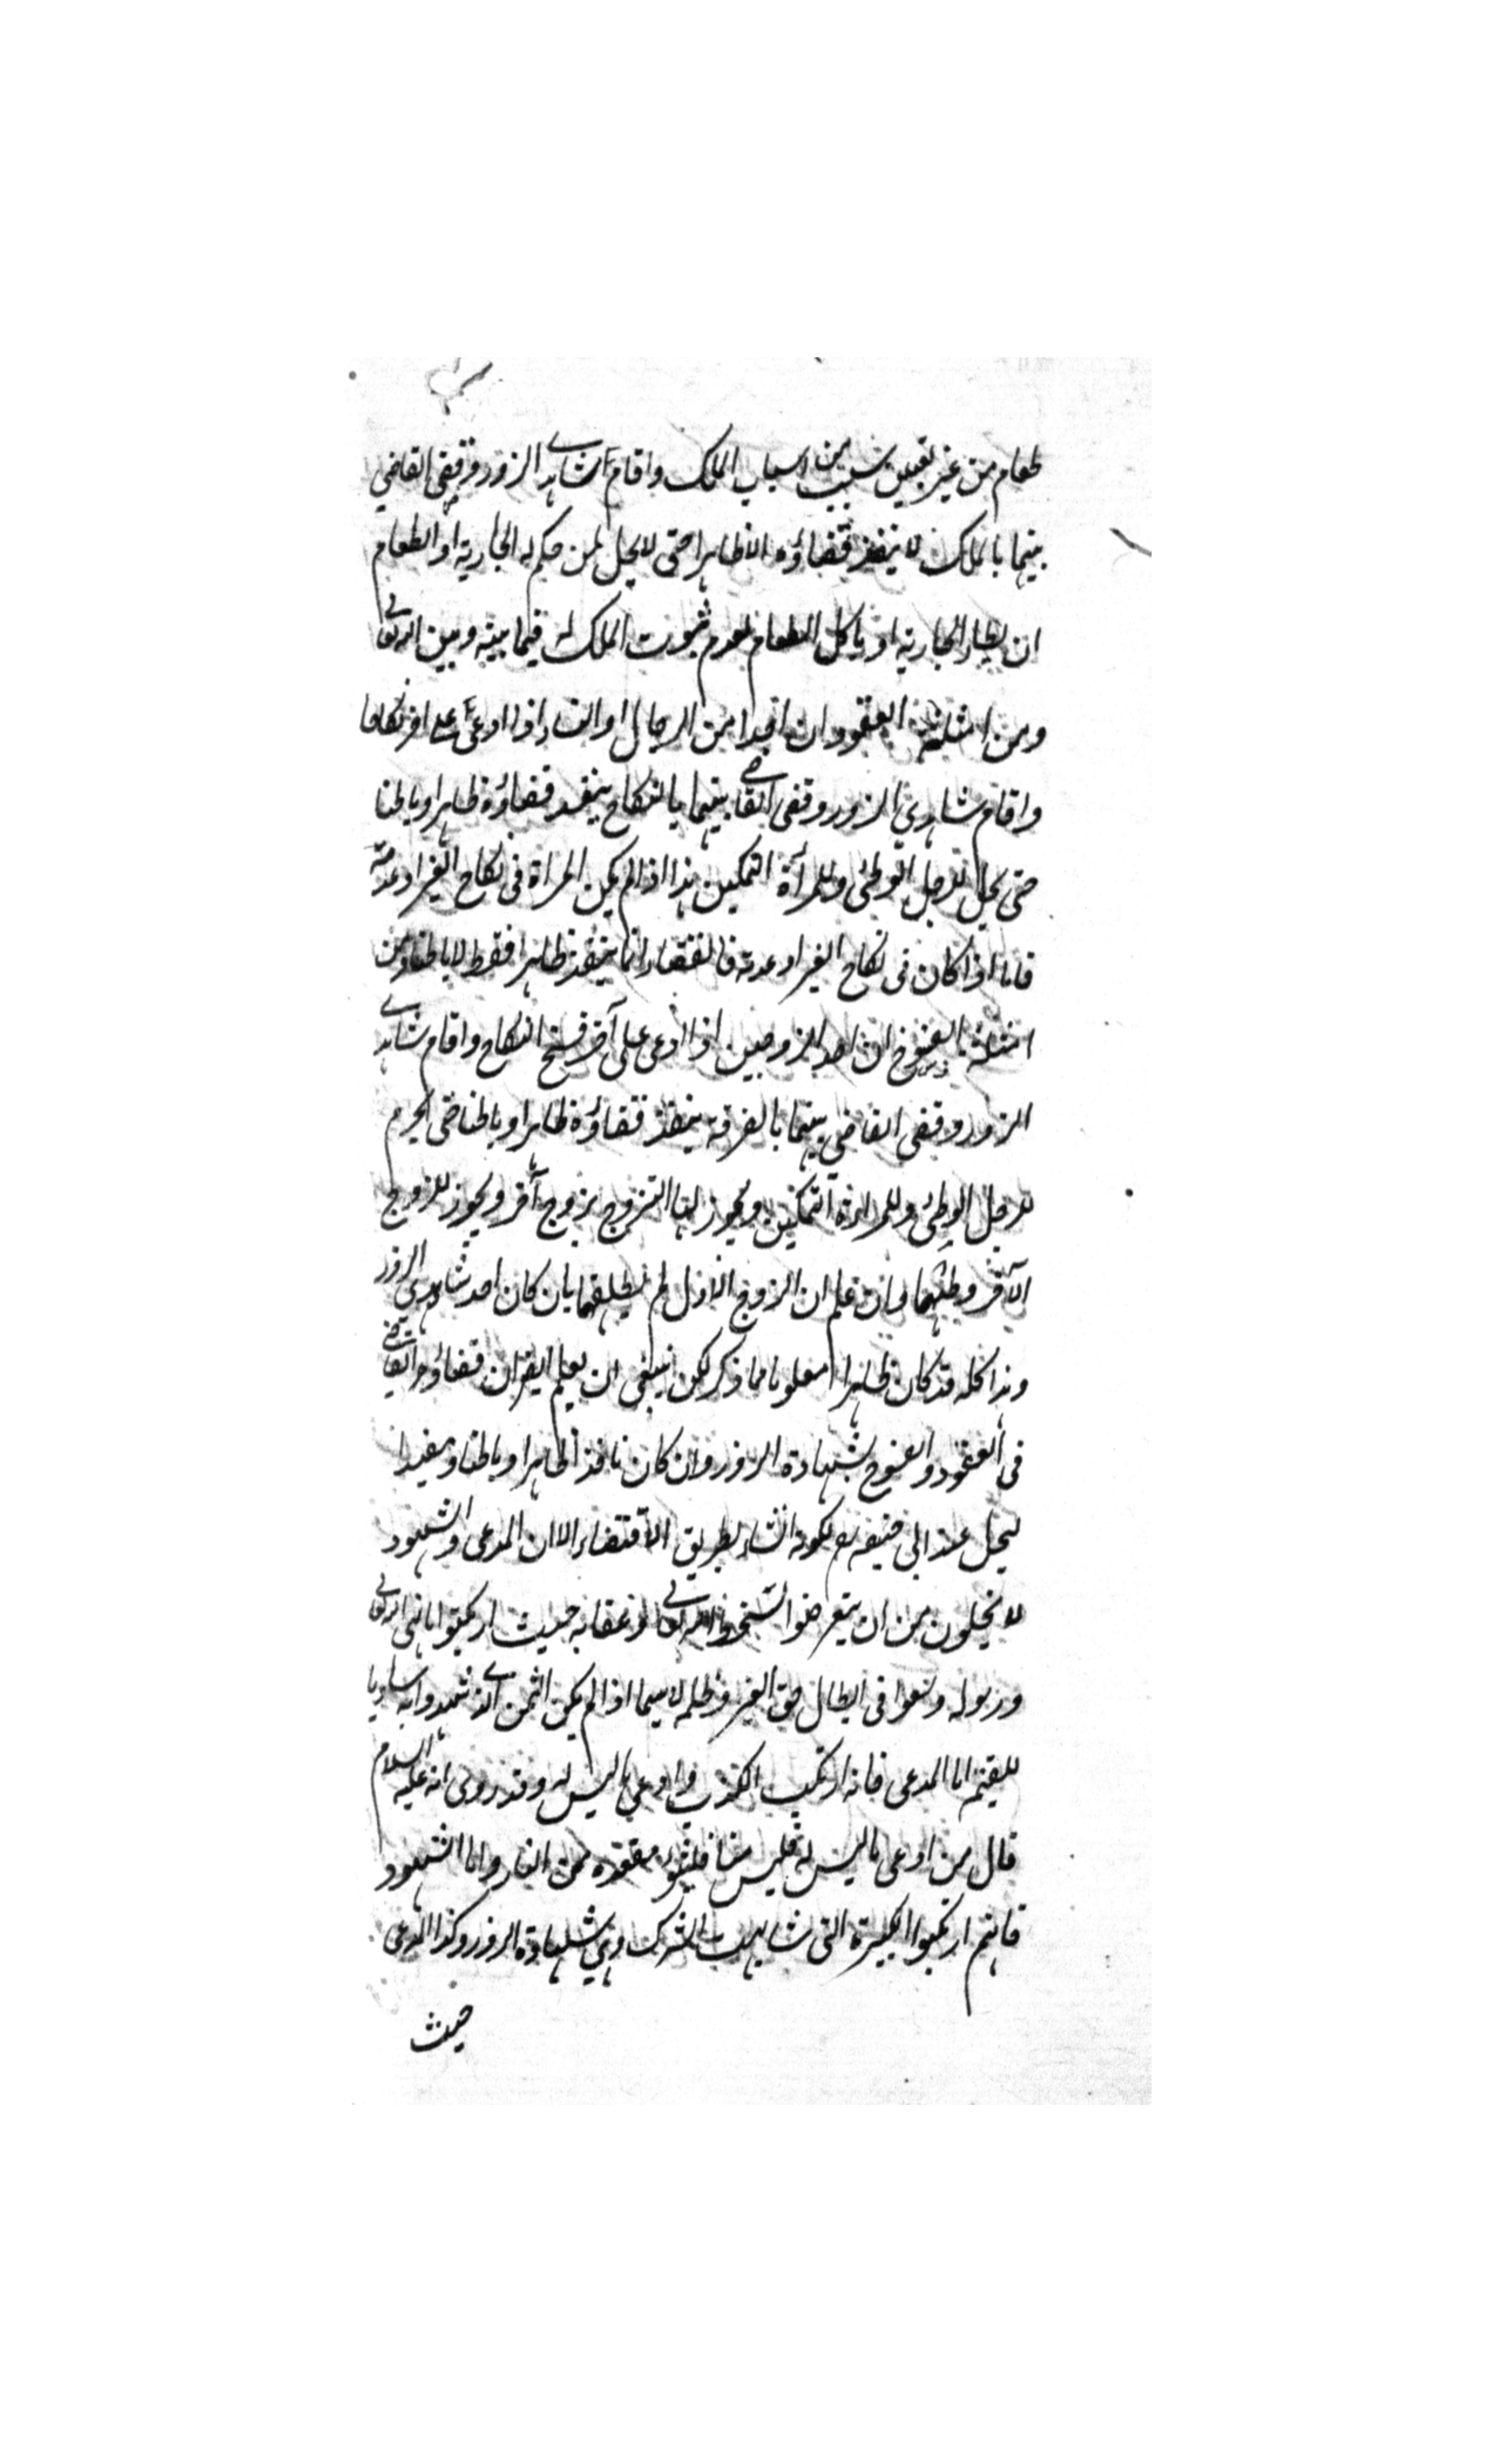 طعام من غير تعيين سبب من اسباب الملك واقام شاهدى الزور وقضى القاضي
بينهما بالملك لا ينفذ قضاؤه الا ظاهرا حتى لا يحل لمن حكم له الجارية او الطعام
ان يطأ الجارية او ياكل الطعام لعدم ثبوت الملك له فيما بينه وبين الله تعالى
ومن امثلة العقود ان احدا من الرجال او النساء اذا ادعى على اخر نكاحا
واقام شاهدي الزور وقضى القاضي بينهما بالنكاح ينفذ قضاؤه ظاهرا وباطنا
حتى يحل للرجل الوطئ وللمرأة التمكين هذا اذا لم يكن المراة فى نكاح الغير او عدته
فاما اذا كان فى نكاح الغير او عدته فالقضاء انما ينفذ ظاهرا فقط لا باطنا ومن
امثلة الفسوخ ان احد الزوجين اذا ادعى على آخر فسخ النكاح واقام شاهدى
الزور وقضى القاضي بينهما بالفرقة ينفذ قضاؤه ظاهرا وباطنا حتى يحرم
للرجل الوطئ وللمراة التمكين ويجوز لها التزوج بزوج آخر ويجوز للزوج
الآخر وطئها وان علم ان الزوج الاول لم يطلقها بان كان احد شاهدى الزور
وهذا كله قد كان ظاهرا معلوما مما ذكر لكن ينبغى ان يعلم ايضا ان قضاء القاضي
فى العقود والفسوخ بشهادة الزور وان كان نافذا ظاهرا وباطنا ومفيدا
لحل عند ابى حنيفه لكونه انشاء بطريق الاقتضاء الا ان المدعى والشهود
لا يخلون من ان يتعرضوا لسخط الله تعالى وعقابه حيث ارتكبوا ما نهى الله تعالى
ورسوله وسعوا فى ابطال حق الغير وظلمه لا سيما اذا لم يكن الثمن الذى شهدوا به مساويا
للقيمة اما المدعى فانه ارتكب الكذب وادعى ما ليس له وقد روى انه عليه السلام
قال من ادعى ما ليس له فليس منا فليتبوأ مقعده من النار واما الشهود
فانهم ارتكبوا الكبيرة التى شابهت الشرك وهي شهادة الزور وكذا المدعى
حيث